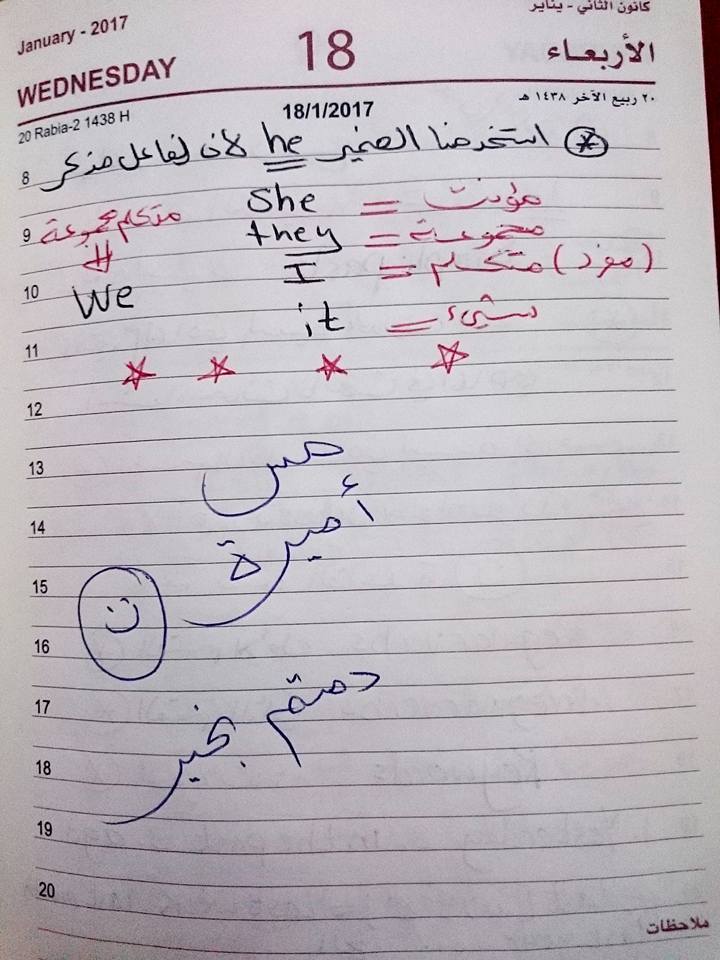 كانون الثاني - يناير
January - 2017
الأربعاء
18
WEDNESDAY
٢٠ ربيع الآخر ١٤٣٨ هـ
18/1/2017
20 Rabia-2 1438 H
* استخدمنا الضمير he لأن الفاعل مذكر
8
She = مؤنث
9
they = مجموعة
متكلم مجموعة
I = متكلم (مفرد)
10
We
it = شيء
11
12
13
مس
14
أميرة
15
ن
16
دمتم بخير
17
18
19
20
ملاحظات